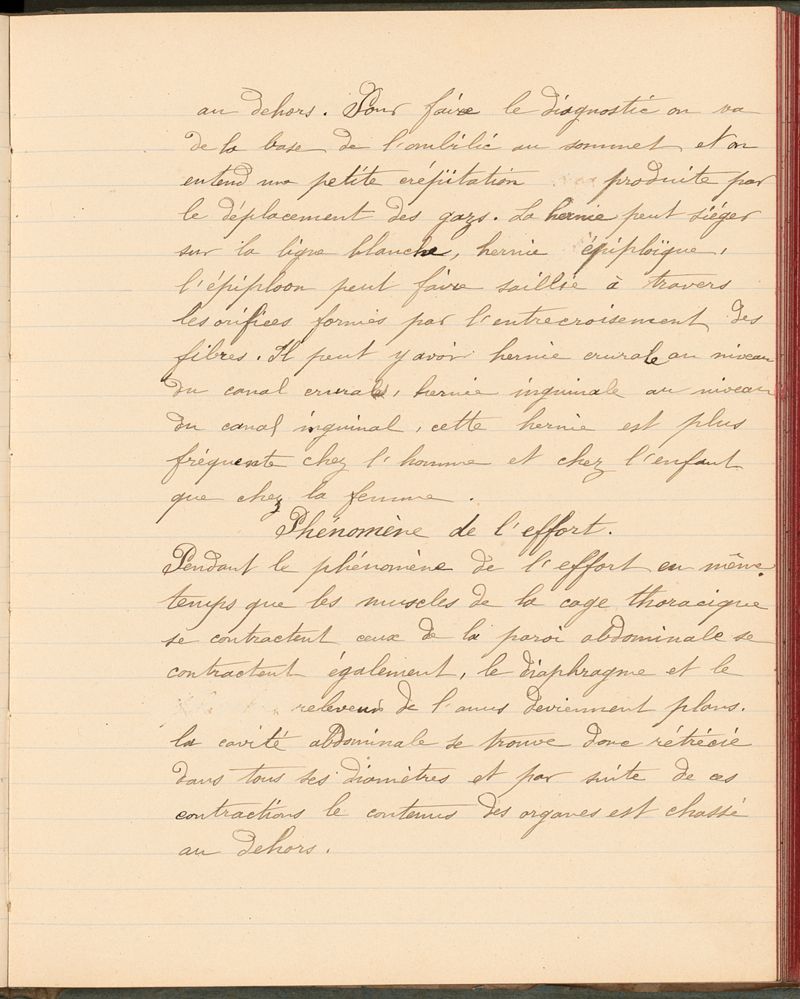 au dehors. Pour faire le diagnostic on va
de la base de l'ombilic au sommet et on
entend une petite crépitation produite par
le déplacement des gazs. La hernie peut siéger
sur la ligne blanche, hernie épiploïque,
l'épiploon peut faire saillie à travers
les orifices formés par l'entrecroisement des
fibres. Il peut y avoir hernie crurale au niveau
du canal crural, hernie inguinale au niveau
du canal inguinal, cette hernie est plus
fréquente chez l'homme et chez l'enfant
que chez la femme.
Phénomène de l'effort.
Pendant le phénomène de l'effort en même
temps que les muscles de la cage thoracique
se contractent ceux de la paroi abdominale se
contractent également, le diaphragme et le
releveur de l'anus deviennent plans.
la cavité abdominale se trouve donc rétrécie
dans tous ses diamètres et par suite de ces
contractions le contenus des organes est chassé
au dehors.